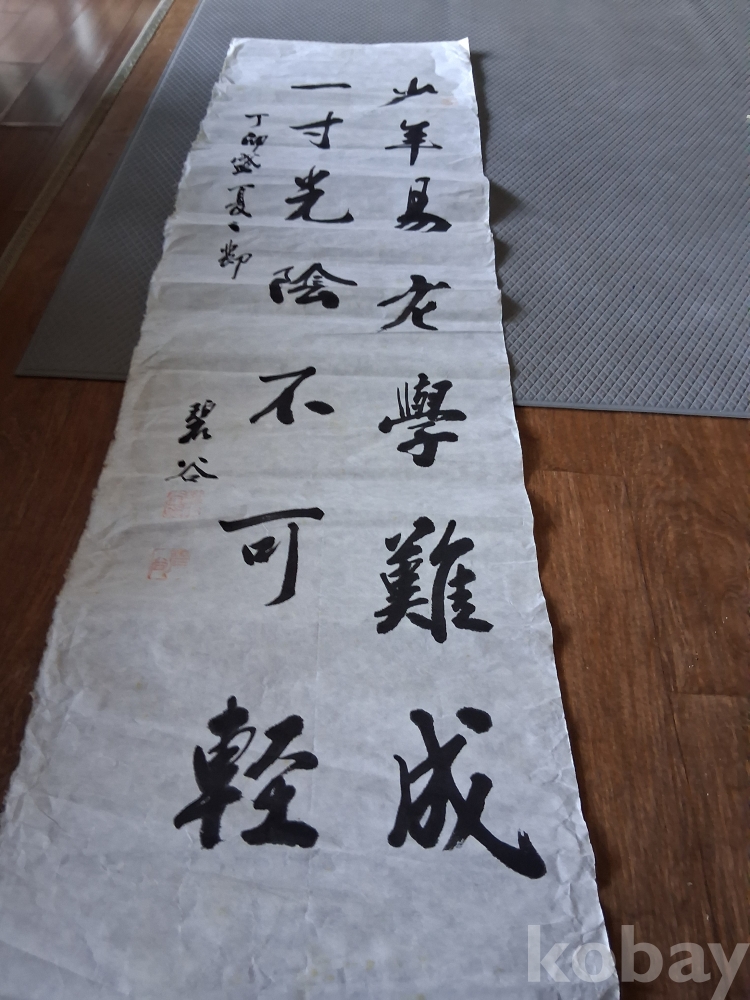 少年易老學難成
一寸光陰不可輕
丁卯盛夏之節
碧谷
kobay